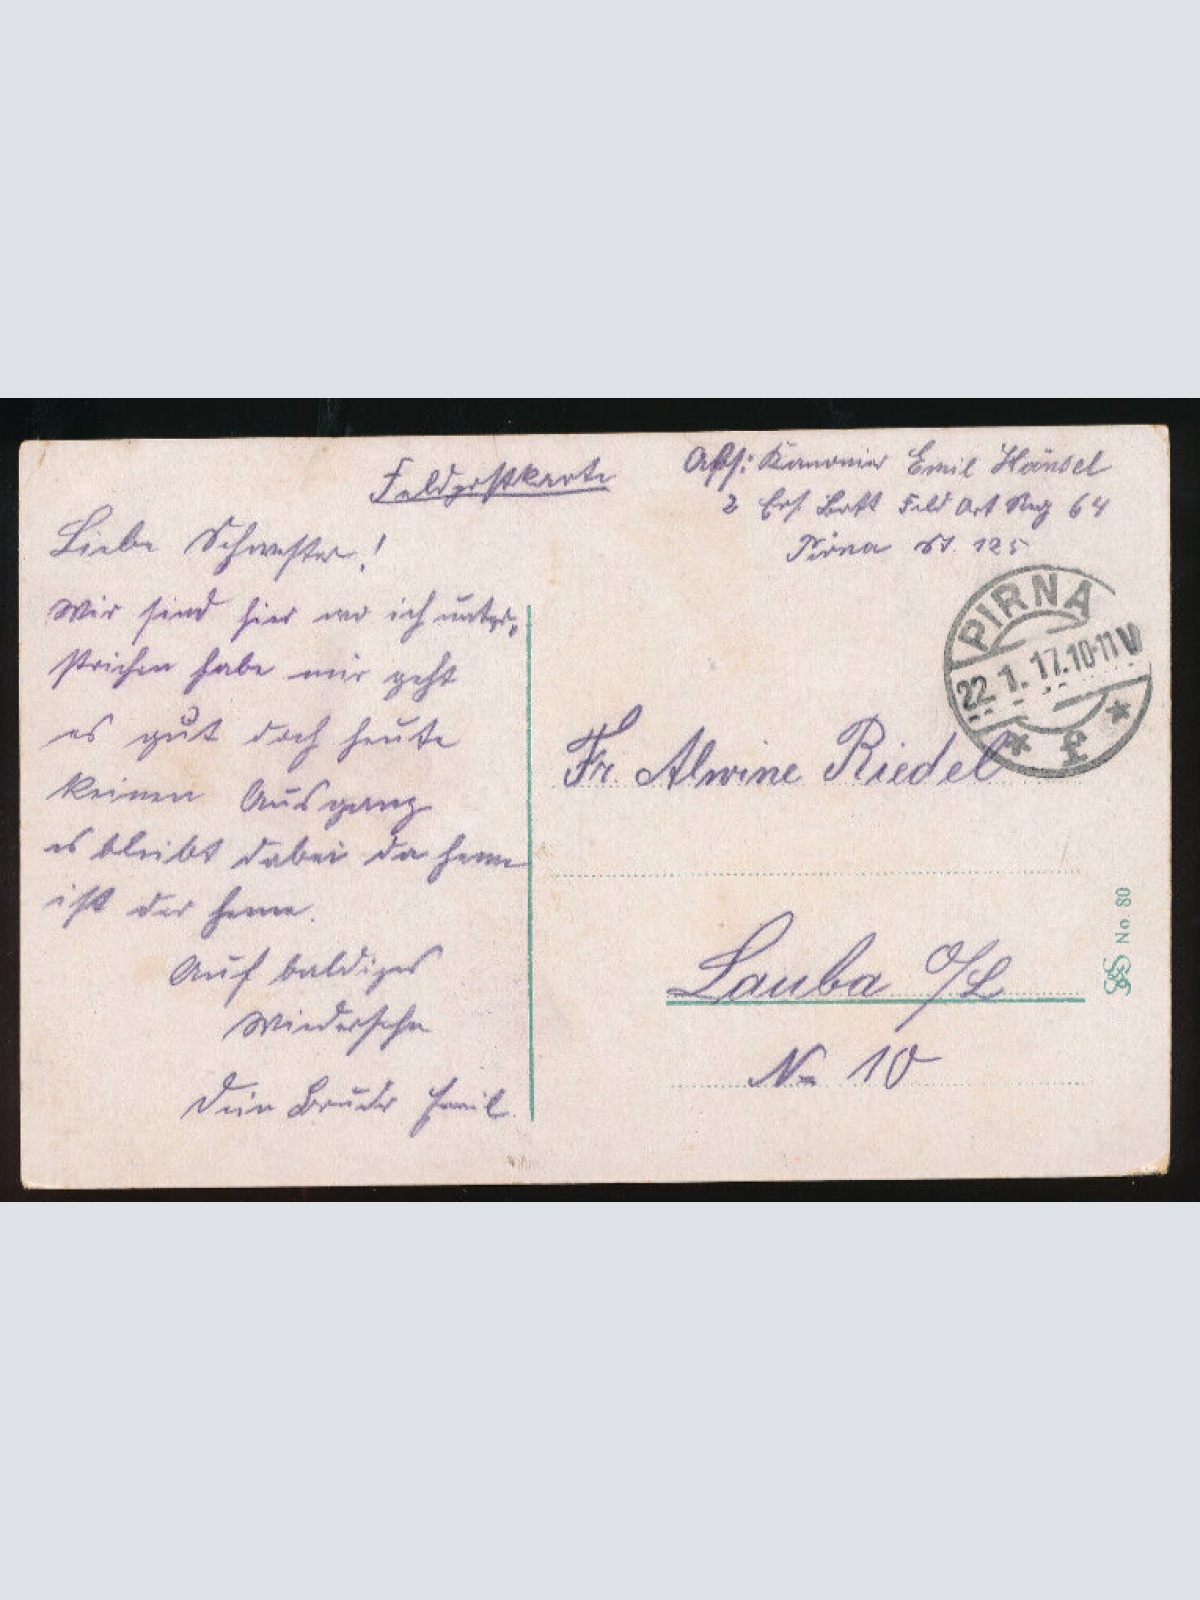 Feldpostkarte
Abs: Kanonier Emil Hänsel
2 Ers. Batt Feld Art Reg 64
Pirna St. 125
PIRNA
22.1.17.10-11 V
* f *
Liebe Schwester!
Wir sind hier wo ich unter-
strichen habe mir geht
es gut doch heute
keinen Ausgang
es bleibt dabei da
ist der
Auf baldiges
Wiedersehn
Dein Bruder Emil.
Fr. Alwine Riedel
Lauba O/L
No 10
No 80